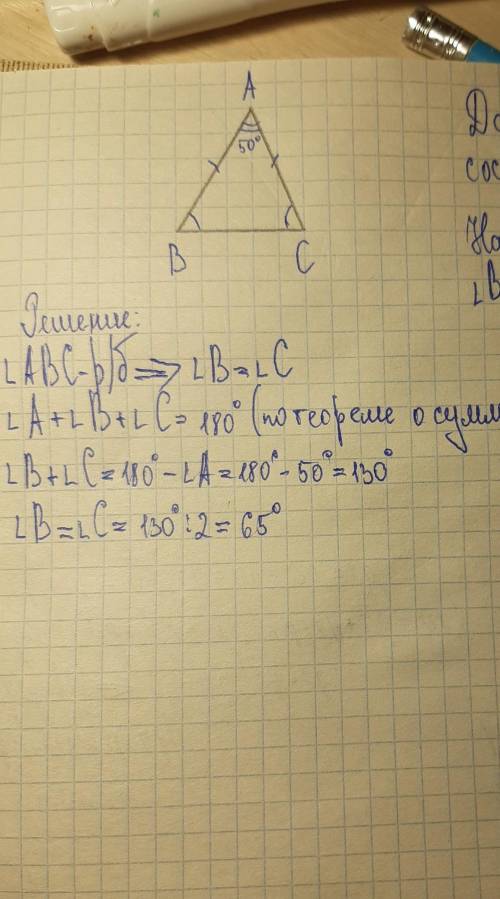 A
50°
B
C
До
сос
На
∠B
Решение:
∠ABC-р/б => ∠B=∠C
∠A+∠B+∠C= 180° (по теореме о сумм
∠B+∠C=180°-∠A=180°-50°=130°
∠B=∠C= 130°:2= 65°